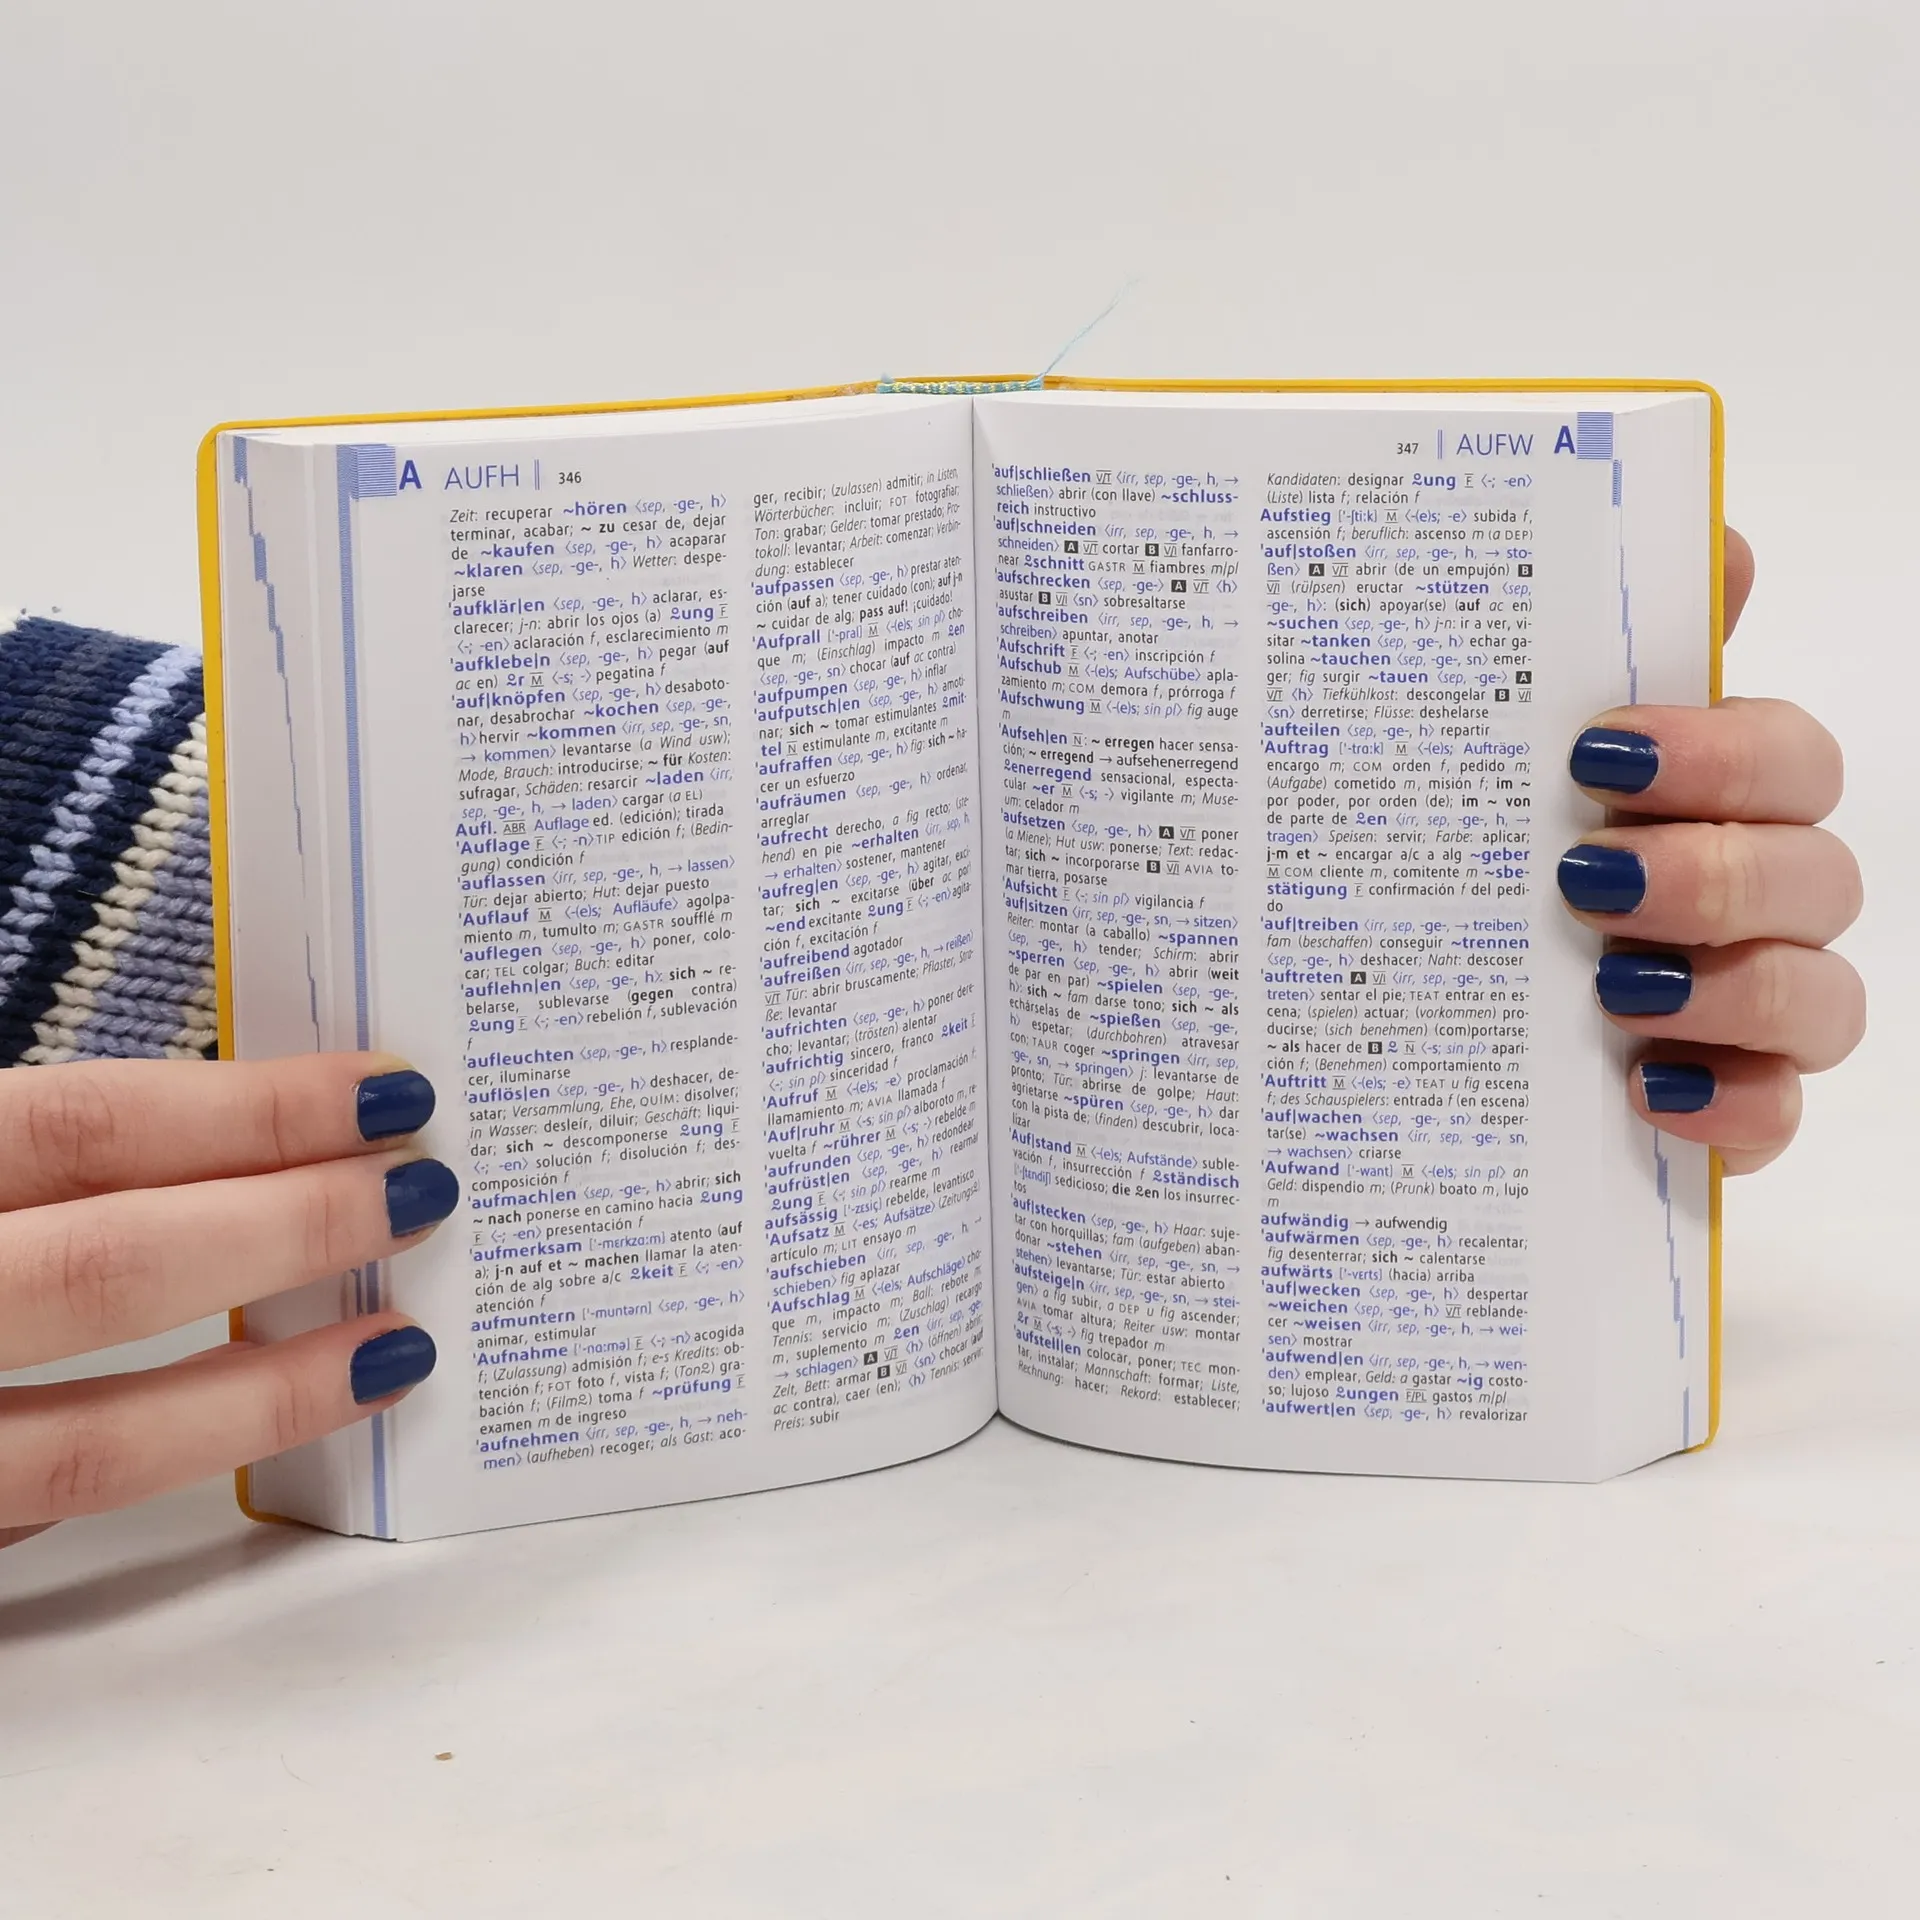 A AUFH 346
Zeit: recuperar ~hören ⟨sep, -ge-, h⟩
terminar, acabar; ~ zu cesar de, dejar
de ~kaufen ⟨sep, -ge-, h⟩ acaparar
~klaren ⟨sep, -ge-, h⟩ Wetter: despe-
jarse
'aufklär|en ⟨sep, -ge-, h⟩ aclarar, es-
clarecer; j-n: abrir los ojos (a) ℒung F
⟨-; -en⟩ aclaración f, esclarecimiento m
'aufklebe|n ⟨sep, -ge-, h⟩ pegar (auf
ac en) ℒr M ⟨-s; -⟩ pegatina f
'auf|knöpfen ⟨sep, -ge-, h⟩ desaboto-
nar, desabrochar ~kochen ⟨sep, -ge-,
h⟩ hervir ~kommen ⟨irr, sep, -ge-, sn,
→ kommen⟩ levantarse (a Wind usw);
Mode, Brauch: introducirse; ~ für Kosten:
sufragar, Schäden: resarcir ~laden ⟨irr,
sep, -ge-, h, → laden⟩ cargar (a EL)
Aufl. ABR Auflage ed. (edición); tirada
'Auflage F ⟨-; -n⟩ TIP edición f; (Bedin-
gung) condición f
'auflassen ⟨irr, sep, -ge-, h, → lassen⟩
Tür: dejar abierto; Hut: dejar puesto
'Auflauf M ⟨-(e)s; Aufläufe⟩ agolpa-
miento m, tumulto m; GASTR soufflé m
'auflegen ⟨sep, -ge-, h⟩ poner, colo-
car; TEL colgar; Buch: editar
'auflehn|en ⟨sep, -ge-, h⟩: sich ~ re-
belarse, sublevarse (gegen contra)
ℒung F ⟨-; -en⟩ rebelión f, sublevación
f
'aufleuchten ⟨sep, -ge-, h⟩ resplande-
cer, iluminarse
'auflös|en ⟨sep, -ge-, h⟩ deshacer, de-
satar; Versammlung, Ehe, QUÍM: disolver;
in Wasser: desleír, diluir; Geschäft: liqui-
dar; sich ~ descomponerse ℒung F
⟨-; -en⟩ solución f; disolución f; des-
composición f
'aufmach|en ⟨sep, -ge-, h⟩ abrir; sich
~ nach ponerse en camino hacia ℒung
F ⟨-; -en⟩ presentación f
'aufmerksam ['-mɛrkza:m] atento (auf
a); j-n auf et ~ machen llamar la aten-
ción de alg sobre a/c ℒkeit F ⟨-; -en⟩
atención f
aufmuntern ['-muntərn] ⟨sep, -ge-, h⟩
animar, estimular
'Aufnahme ['-na:mə] F ⟨-; -n⟩ acogida
f; (Zulassung) admisión f; e-s Kredits: ob-
tención f; FOT foto f, vista f; (Tonℒ) gra-
bación f; (Filmℒ) toma f ~prüfung F
examen m de ingreso
'aufnehmen ⟨irr, sep, -ge-, h, → neh-
men⟩ (aufheben) recoger; als Gast: aco-
ger, recibir; (zulassen) admitir; in Listen,
Wörterbücher: incluir; FOT fotografiar;
Ton: grabar; Gelder: tomar prestado; Pro-
tokoll: levantar; Arbeit: comenzar; Verbin-
dung: establecer
'aufpassen ⟨sep, -ge-, h⟩ prestar aten-
ción (auf a); tener cuidado (con); auf j-n
~ cuidar de alg; pass auf! ¡cuidado!
'Aufprall ['-pral] M ⟨-(e)s; sin pl⟩ cho-
que m; (Einschlag) impacto m ℒen
⟨sep, -ge-, sn⟩ chocar (auf ac contra)
'aufpumpen ⟨sep, -ge-, h⟩ inflar
'aufputsch|en ⟨sep, -ge-, h⟩ amoti-
nar; sich ~ tomar estimulantes ℒmit-
tel N estimulante m, excitante m
'aufraffen ⟨sep, -ge-, h⟩ fig: sich ~ ha-
cer un esfuerzo
'aufräumen ⟨sep, -ge-, h⟩ ordenar,
arreglar
'aufrecht derecho, a fig recto; (ste-
hend) en pie ~erhalten ⟨irr, sep, h,
→ erhalten⟩ sostener, mantener
'aufreg|en ⟨sep, -ge-, h⟩ agitar, exci-
tar; sich ~ excitarse (über ac por)
~end excitante ℒung F ⟨-; -en⟩ agita-
ción f, excitación f
'aufreibend agotador
'aufreißen ⟨irr, sep, -ge-, h, → reißen⟩
V/T Tür: abrir bruscamente; Pflaster, Stra-
ße: levantar
'aufrichten ⟨sep, -ge-, h⟩ poner dere-
cho; levantar; (trösten) alentar
'aufrichtig sincero, franco ℒkeit F
⟨-; sin pl⟩ sinceridad f
'Aufruf M ⟨-(e)s; -e⟩ proclamación f,
llamamiento m; AVIA llamada f
'Auf|ruhr M ⟨-s; sin pl⟩ alboroto m, re-
vuelta f ~rührer M ⟨-s; -⟩ rebelde m
'aufrunden ⟨sep, -ge-, h⟩ redondear
'aufrüst|en ⟨sep, -ge-, h⟩ rearmar
ℒung F ⟨-; sin pl⟩ rearme m
aufsässig ['-zɛsiç] rebelde, levantisco
'Aufsatz M ⟨-es; Aufsätze⟩ (Zeitungsℒ)
artículo m; LIT ensayo m
'aufschieben ⟨irr, sep, -ge-, h, →
schieben⟩ fig aplazar
'Aufschlag M ⟨-(e)s; Aufschläge⟩ cho-
que m, impacto m; Ball: rebote m;
Tennis: servicio m; (Zuschlag) recargo
m, suplemento m ℒen ⟨irr, sep, -ge-
→ schlagen⟩ A V/T ⟨h⟩ (öffnen) abrir;
Zelt, Bett: armar B V/I ⟨sn⟩ chocar (auf
ac contra), caer (en); ⟨h⟩ Tennis: servir;
Preis: subir
347 AUFW A
'auf|schließen V/T ⟨irr, sep, -ge-, h, →
schließen⟩ abrir (con llave) ~schluss-
reich instructivo
'auf|schneiden ⟨irr, sep, -ge-, h, →
schneiden⟩ A V/T cortar B V/I fanfarro-
near ℒschnitt GASTR M fiambres m/pl
'aufschrecken ⟨sep, -ge-⟩ A V/T ⟨h⟩
asustar B V/I ⟨sn⟩ sobresaltarse
'aufschreiben ⟨irr, sep, -ge-, h, →
schreiben⟩ apuntar, anotar
'Aufschrift F ⟨-; -en⟩ inscripción f
'Aufschub M ⟨-(e)s; Aufschübe⟩ apla-
zamiento m; COM demora f, prórroga f
'Aufschwung M ⟨-(e)s; sin pl⟩ fig auge
m
'Aufseh|en N: ~ erregen hacer sensa-
ción; ~ erregend → aufsehenerregend
ℒenerregend sensacional, especta-
cular ~er M ⟨-s; -⟩ vigilante m; Muse-
um: celador m
'aufsetzen ⟨sep, -ge-, h⟩ A V/T poner
(a Miene); Hut usw: ponerse; Text: redac-
tar; sich ~ incorporarse B V/I AVIA to-
mar tierra, posarse
'Aufsicht F ⟨-; sin pl⟩ vigilancia f
'auf|sitzen ⟨irr, sep, -ge-, sn, → sitzen⟩
Reiter: montar (a caballo) ~spannen
⟨sep, -ge-, h⟩ tender; Schirm: abrir
~sperren ⟨sep, -ge-, h⟩ abrir (weit
de par en par) ~spielen ⟨sep, -ge-,
h⟩: sich ~ fam darse tono; sich ~ als
echárselas de ~spießen ⟨sep, -ge-,
h⟩ espetar; (durchbohren) atravesar
con; TAUR coger ~springen ⟨irr, sep,
-ge-, sn, → springen⟩ j: levantarse de
pronto; Tür: abrirse de golpe; Haut:
agrietarse ~spüren ⟨sep, -ge-, h⟩ dar
con la pista de; (finden) descubrir, loca-
lizar
'Auf|stand M ⟨-(e)s; Aufstände⟩ suble-
vación f, insurrección f ℒständisch
['-ʃtɛndiʃ] sedicioso; die ℒen los insurrec-
tos
'auf|stecken ⟨sep, -ge-, h⟩ Haar: suje-
tar con horquillas; fam (aufgeben) aban-
donar ~stehen ⟨irr, sep, -ge-, sn, →
stehen⟩ levantarse; Tür: estar abierto
'aufsteige|n ⟨irr, sep, -ge-, sn, → stei-
gen⟩ a fig subir, a DEP u fig ascender;
AVIA tomar altura; Reiter usw: montar
ℒr M ⟨-s; -⟩ fig trepador m
'aufstell|en colocar, poner; TEC mon-
tar, instalar; Mannschaft: formar; Liste,
Rechnung: hacer; Rekord: establecer;
Kandidaten: designar ℒung F ⟨-; -en⟩
(Liste) lista f; relación f
Aufstieg ['-ʃti:k] M ⟨-(e)s; -e⟩ subida f,
ascensión f; beruflich: ascenso m (a DEP)
'auf|stoßen ⟨irr, sep, -ge-, h, → sto-
ßen⟩ A V/T abrir (de un empujón) B
V/I (rülpsen) eructar ~stützen ⟨sep,
-ge-, h⟩: (sich) apoyar(se) (auf ac en)
~suchen ⟨sep, -ge-, h⟩ j-n: ir a ver, vi-
sitar ~tanken ⟨sep, -ge-, h⟩ echar ga-
solina ~tauchen ⟨sep, -ge-, sn⟩ emer-
ger; fig surgir ~tauen ⟨sep, -ge-⟩ A
V/T ⟨h⟩ Tiefkühlkost: descongelar B V/I
⟨sn⟩ derretirse; Flüsse: deshelarse
'aufteilen ⟨sep, -ge-, h⟩ repartir
'Auftrag ['-tra:k] M ⟨-(e)s; Aufträge⟩
encargo m; COM orden f, pedido m;
(Aufgabe) cometido m, misión f; im ~
por poder, por orden (de); im ~ von
de parte de ℒen ⟨irr, sep, -ge-, h, →
tragen⟩ Speisen: servir; Farbe: aplicar;
j-m et ~ encargar a/c a alg ~geber
M COM cliente m, comitente m ~sbe-
stätigung F confirmación f del pedi-
do
'auf|treiben ⟨irr, sep, -ge-, → treiben⟩
fam (beschaffen) conseguir ~trennen
⟨sep, -ge-, h⟩ deshacer; Naht: descoser
'auftreten A V/I ⟨irr, sep, -ge-, sn, →
treten⟩ sentar el pie; TEAT entrar en es-
cena; (spielen) actuar; (vorkommen) pro-
ducirse; (sich benehmen) (com)portarse;
~ als hacer de B ℒ N ⟨-s; sin pl⟩ apari-
ción f; (Benehmen) comportamiento m
'Auftritt M ⟨-(e)s; -e⟩ TEAT u fig escena
f; des Schauspielers: entrada f (en escena)
'auf|wachen ⟨sep, -ge-, sn⟩ desper-
tar(se) ~wachsen ⟨irr, sep, -ge-, sn,
→ wachsen⟩ criarse
'Aufwand ['-want] M ⟨-(e)s; sin pl⟩ an
Geld: dispendio m; (Prunk) boato m, lujo
m
aufwändig → aufwendig
'aufwärmen ⟨sep, -ge-, h⟩ recalentar;
fig desenterrar; sich ~ calentarse
aufwärts ['-vɛrts] (hacia) arriba
'auf|wecken ⟨sep, -ge-, h⟩ despertar
~weichen ⟨sep, -ge-, h⟩ V/T reblande-
cer ~weisen ⟨irr, sep, -ge-, h, → wei-
sen⟩ mostrar
'aufwend|en ⟨irr, sep, -ge-, h, → wen-
den⟩ emplear, Geld: a gastar ~ig costo-
so; lujoso ℒungen F/PL gastos m/pl
'aufwert|en ⟨sep, -ge-, h⟩ revalorizar